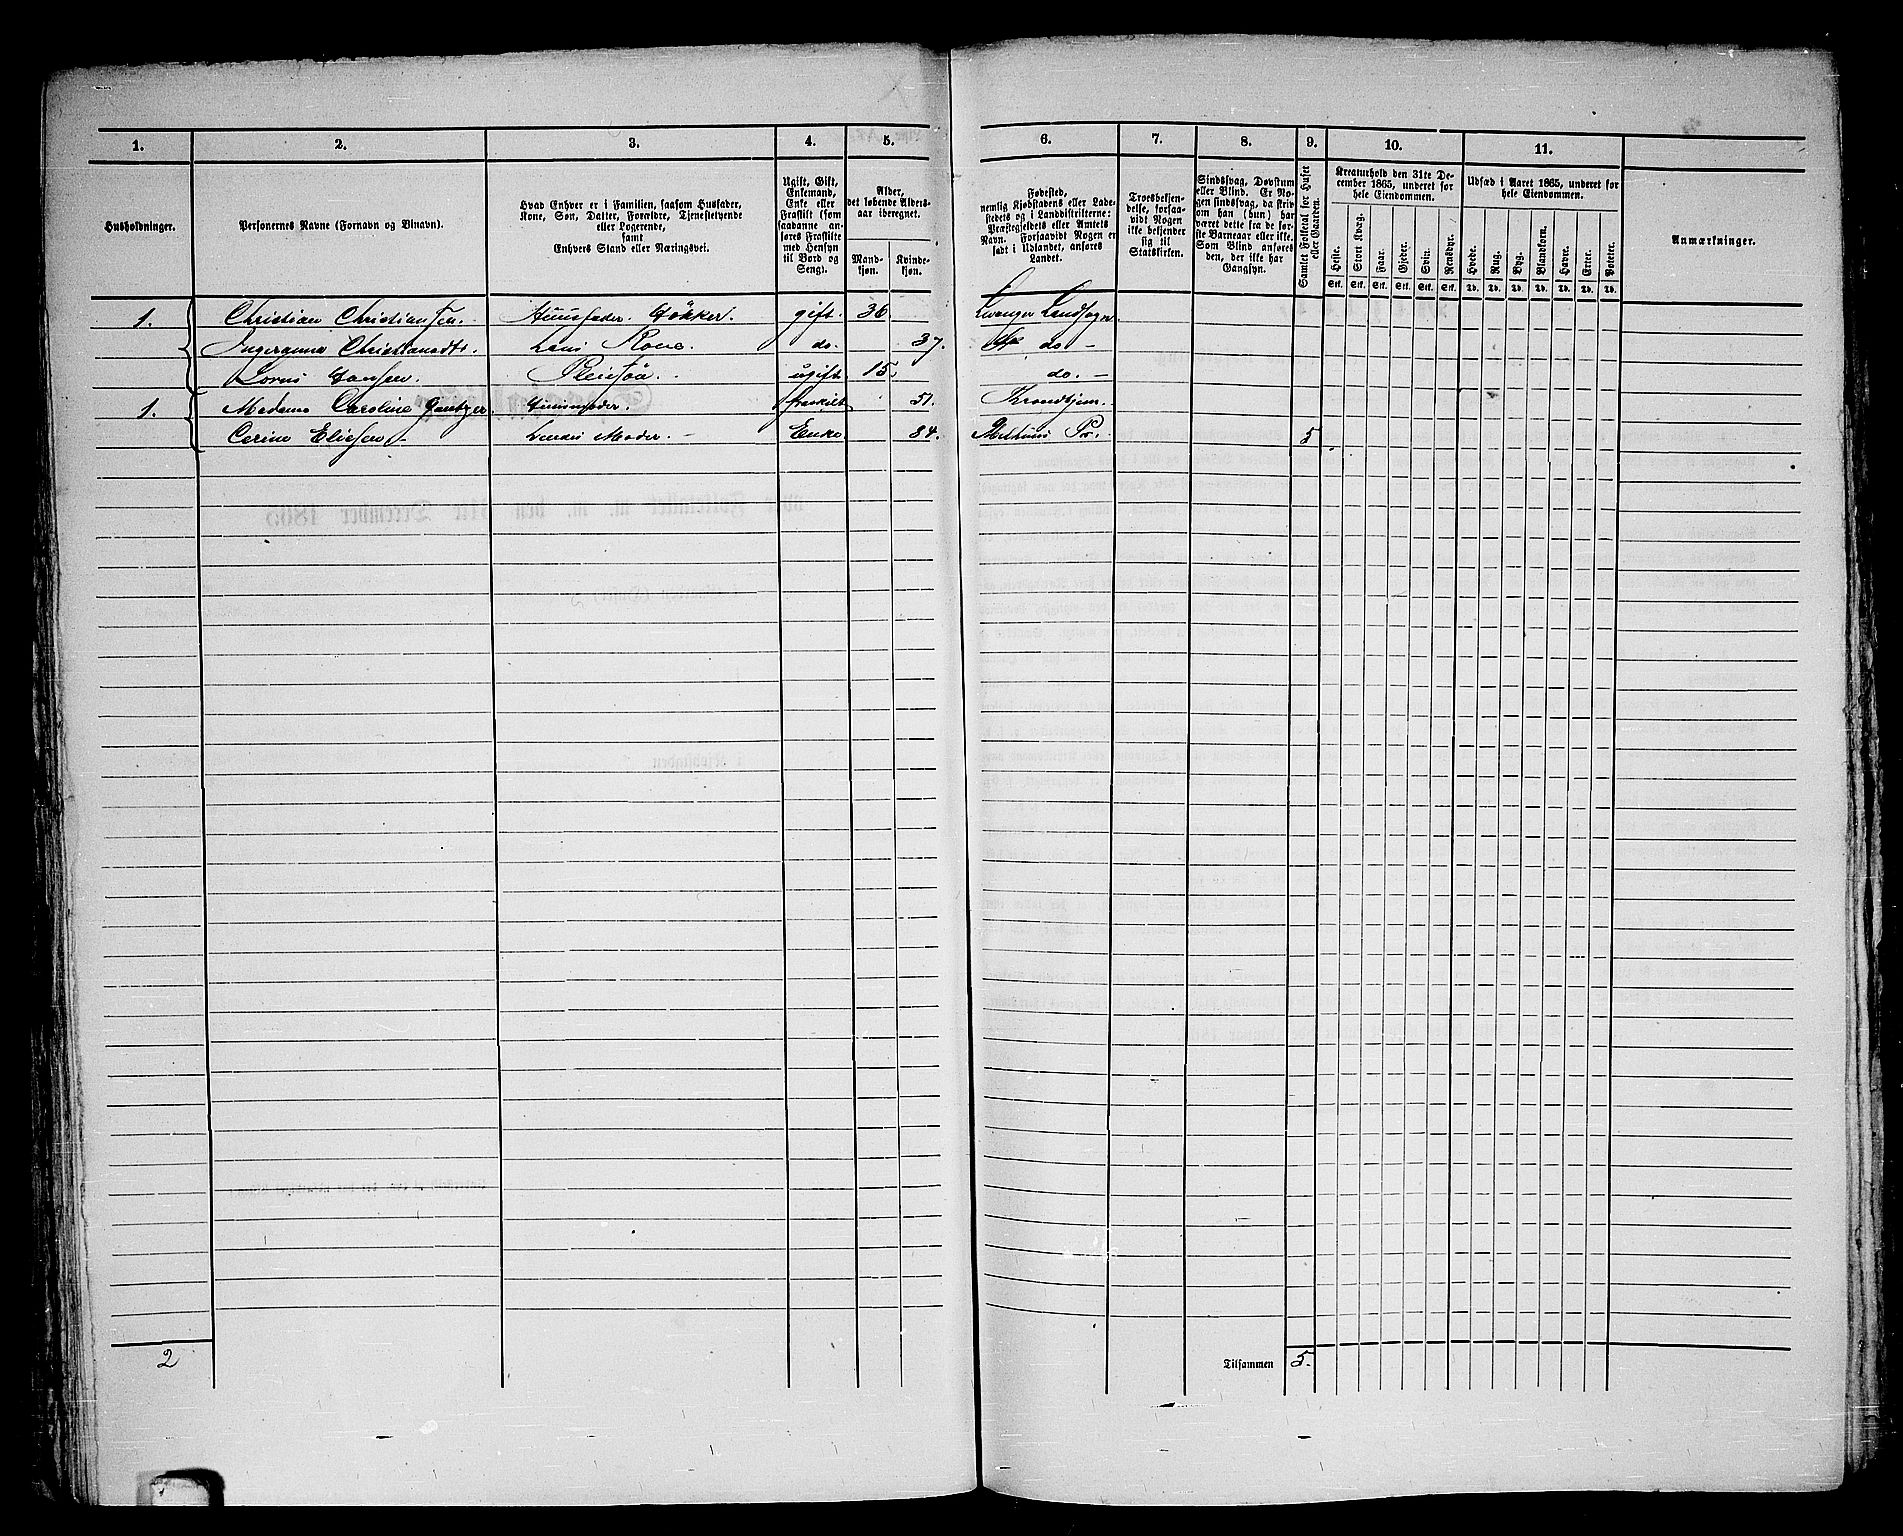 1. 2. 3. 4. 5. 6. 7. 8. 9. 10. 11.
Husholdninger.
Personernes Navne (Fornavn og Tilnavn).
Hvad Enhver er i Familien, saasom Husfader,
Kone, Søn, Datter, Forældre, Tjenestetyende
eller Logerende,
samt
Enhvers Stand eller Næringsvei.
Ugift, Gift,
Enkemand,
Enke eller
Fraskilt (som
saadanne an-
føres Fraskilte
med Hensyn
til Bord og
Seng).
Alder,
det løbende Alders-
aar iberegnet.
Mand-
kjøn.
Kvinde-
kjøn.
Fødested,
nemlig Kjøbstadens eller Lade-
stedets og i Landdistrikterne:
Præstegjeldets eller Amtets
Navn. Forsaavidt Nogen er
født i Udlandet, anføres
Landet.
Troesbekjen-
delse, forsaa-
vidt Nogen
ikke bekjender
sig til
Statskirken.
Sindssvag, Døvstum
eller Blind. Er No-
gen sindssvag, da skriv
om han (hun) har
været dette fra de før-
ste Barneaar eller ikke.
Som Blind anføres
den, der ikke har
Gangsyn.
Samlet Folketal for Huset
eller Gaarden.
Kreaturhold den 31te De-
cember 1865, underet for
hele Eiendommen.
Heste. Stort Kvæg. Faar. Gjeder. Svin. Rensdyr.
Stk. Stk. Stk. Stk. Stk. Stk.
Udsæd i Aaret 1865, underet for
hele Eiendommen.
Hvede. Rug. Byg. Blandkorn. Havre. Erter. Poteter.
Td. Td. Td. Td. Td. Td. Td.
Anmærkninger.
1. Christian Christiansen. Huusfader. gift 36 Levanger Landsogn
Christiansdtr. Kone. do. 37. do –
Hansen. Pleiesøn. ugift 15 do. –
1. Madame Caroline Huusmoder. fraskilt 51. Trondhjem.
Eliesen – Moder. – Enke 84. Melhuus Pr. 5
2 Tilsammen 5.